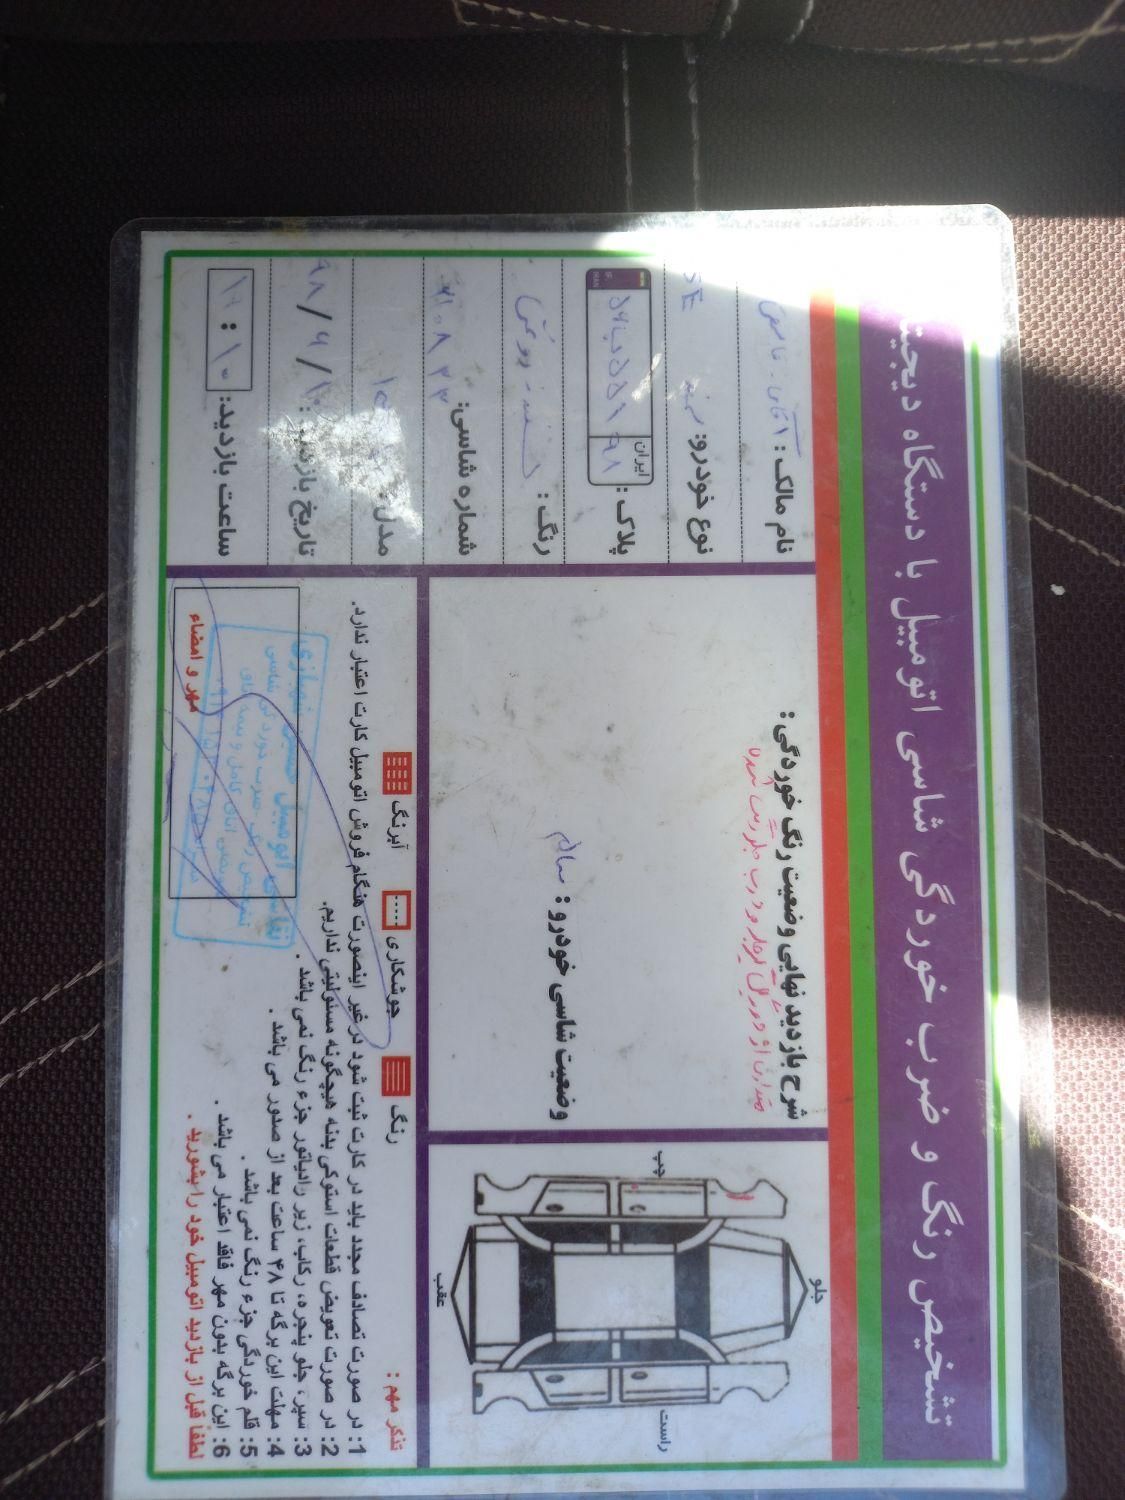 تشخیص رنگ و ضرب خوردگی شاسی اتومبیل با دستگاه دیجیتا
نام مالک : آقای قاسمی
نوع خودرو: سمند SE
پلاک : ایران
IR.
IRAN
رنگ : سفید روغنی
شماره شاسی:
مدل:
تاریخ بازدید: ۹۸/۹/۱۰
ساعت بازدید: ۱۰ : ۱۰
شرح بازدید نهایی وضعیت رنگ خوردگی :
مقداری از دور گلگیر جلو و درب جلو رنگ شده
وضعیت شاسی خودرو : سالم
جلو
چپ
راست
عقب
رنگ
جوشکاری
آبرنگ
تذکر مهم :
1: در صورت تصادف مجدد باید در کارت ثبت شود در غیر اینصورت هنگام فروش اتومبیل کارت اعتبار ندارد.
2: در صورت تعویض قطعات استوکی بدنه هیچگونه مسئولیتی نداریم.
3: سپر، جلو پنجره، رکاب، زیر رادیاتور جزء رنگ نمی باشد .
4: مهلت این برگه تا ۴۸ ساعت بعد از صدور می باشد .
5: قلم خوردگی جزء رنگ نمی باشد .
6: این برگه بدون مهر فاقد اعتبار می باشد .
لطفاً قبل از بازدید اتومبیل خود را بشورید .
مهر و امضاء
نقاشی اتومبیل
تشخیص رنگ، ضرب خوردگی شاسی